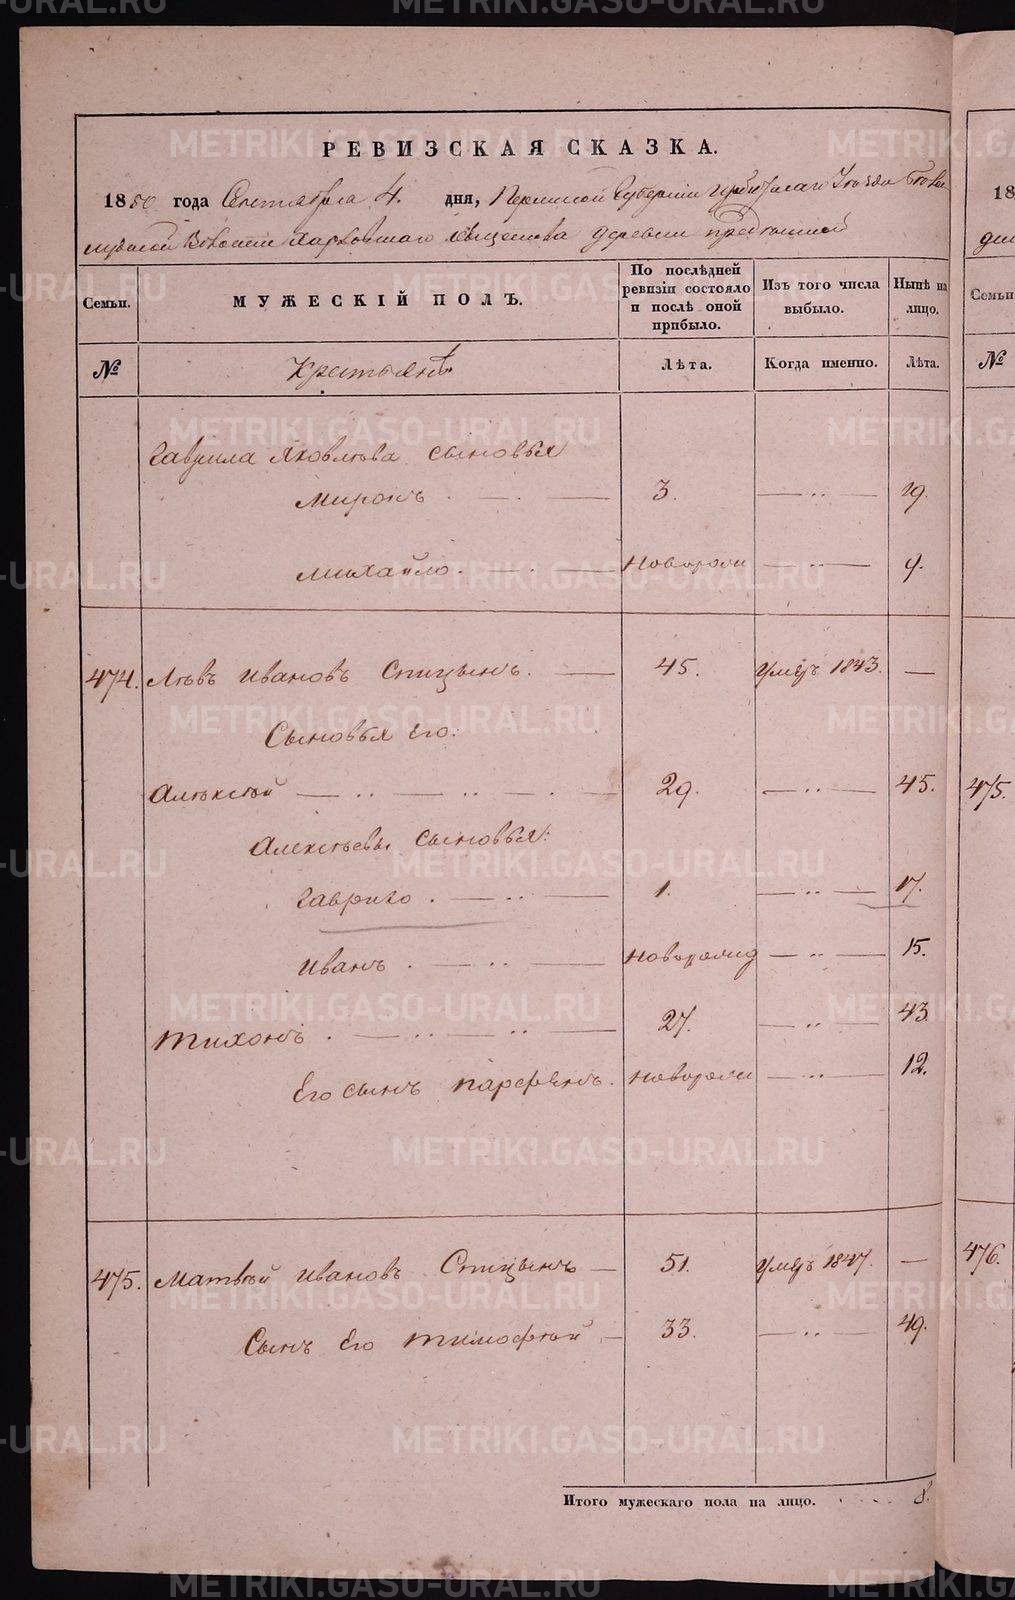 РЕВИЗСКАЯ СКАЗКА.
1850 года Сентября 4. дня, Пермской Губернии Ирбитскаго Уезда
Волости Харловскаго общества деревни
Семьи.
МУЖЕСКІЙ ПОЛЪ.
По послѣдней ревизіи состояло и послѣ оной прибыло.
Изъ того числа выбыло.
Нынѣ на лицо.
№
Крестьянъ
Лѣта.
Когда именно.
Лѣта.
Гаврила Яковлева сыновья
Миронъ . — . — 3. — .. — 19.
Михайло. — . — Новорожд — .. — 9.
474. Лѣвъ Ивановъ Спицынъ. — 45. Умеръ 1843. —
Сыновья Его:
Алексѣй — .. — .. — . — 29. — .. — 45.
Алексѣевы сыновья:
Гаврило . — .. — 1. — .. — 17.
Иванъ . — .. — Новорожд — .. — 15.
Тихонъ . — .. — .. — 27. — .. — 43
Его сынъ Парфенъ. Новорожд — .. — 12.
475. Матвѣй Ивановъ Спицынъ — 51. Умеръ 1847. —
Сынъ Его Тимофѣй — 33. — .. — 49.
Итого мужескаго пола на лицо. . . . . 8.
18
Семьи
№
475.
476.
METRIKI.GASO-URAL.RU